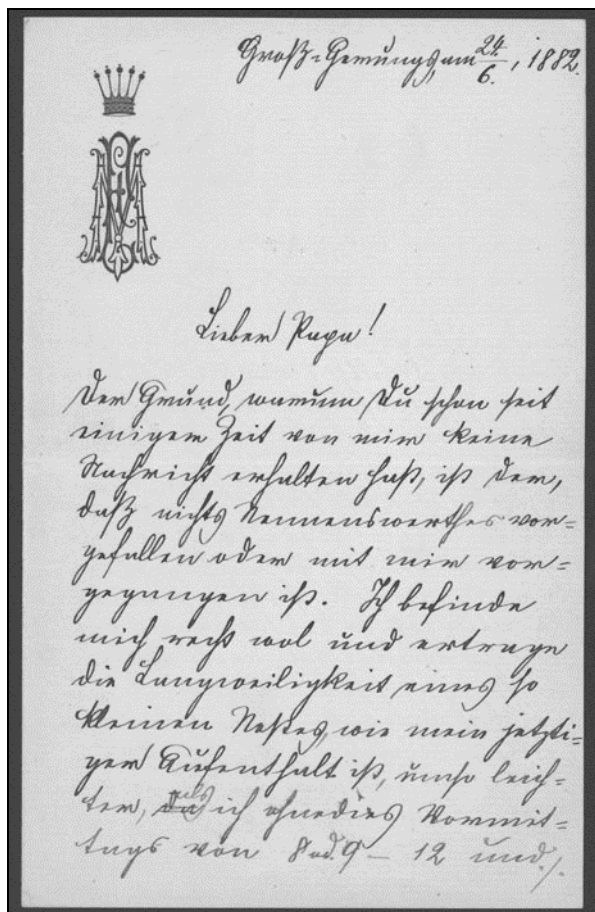 Groß-Gerungs, am 24./6., 1882.
Lieber Papa!
Der Grund, warum Du schon seit
einiger Zeit von mir keine
Nachricht erhalten hast, ist der,
daß nichts Nennenswerthes vor=
gefallen oder mit mir vor=
gegangen ist. Ich befinde
mich recht wol und ertrage
die Langweiligkeit eines so
kleinen Nestes, wie mein jetzti=
ger Aufenthalt ist, umso leich=
ter, als ich ohnedies Vormit=
tags von 8 od. 9 – 12 und ./.